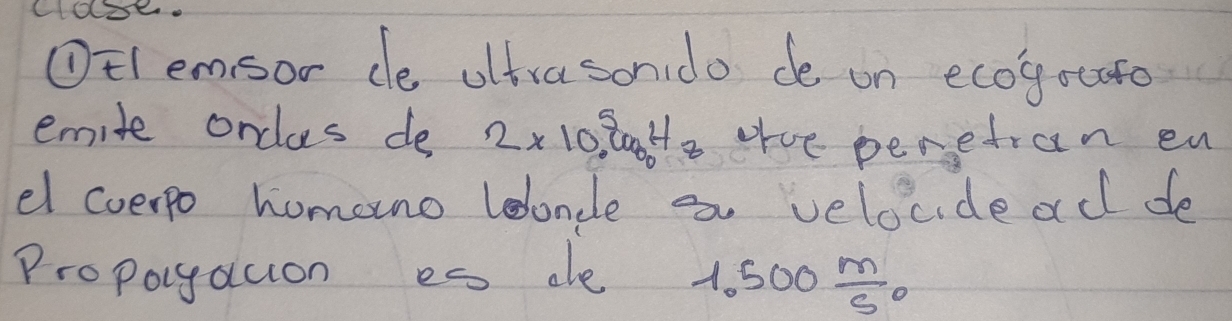 clase.
① El emisor de ultrasonido de un ecógrafo
emite ondas de 2x10 Hz que penetran en
el cuerpo humano donde su velocidead de
Propagacion es de 1.500 m/s.